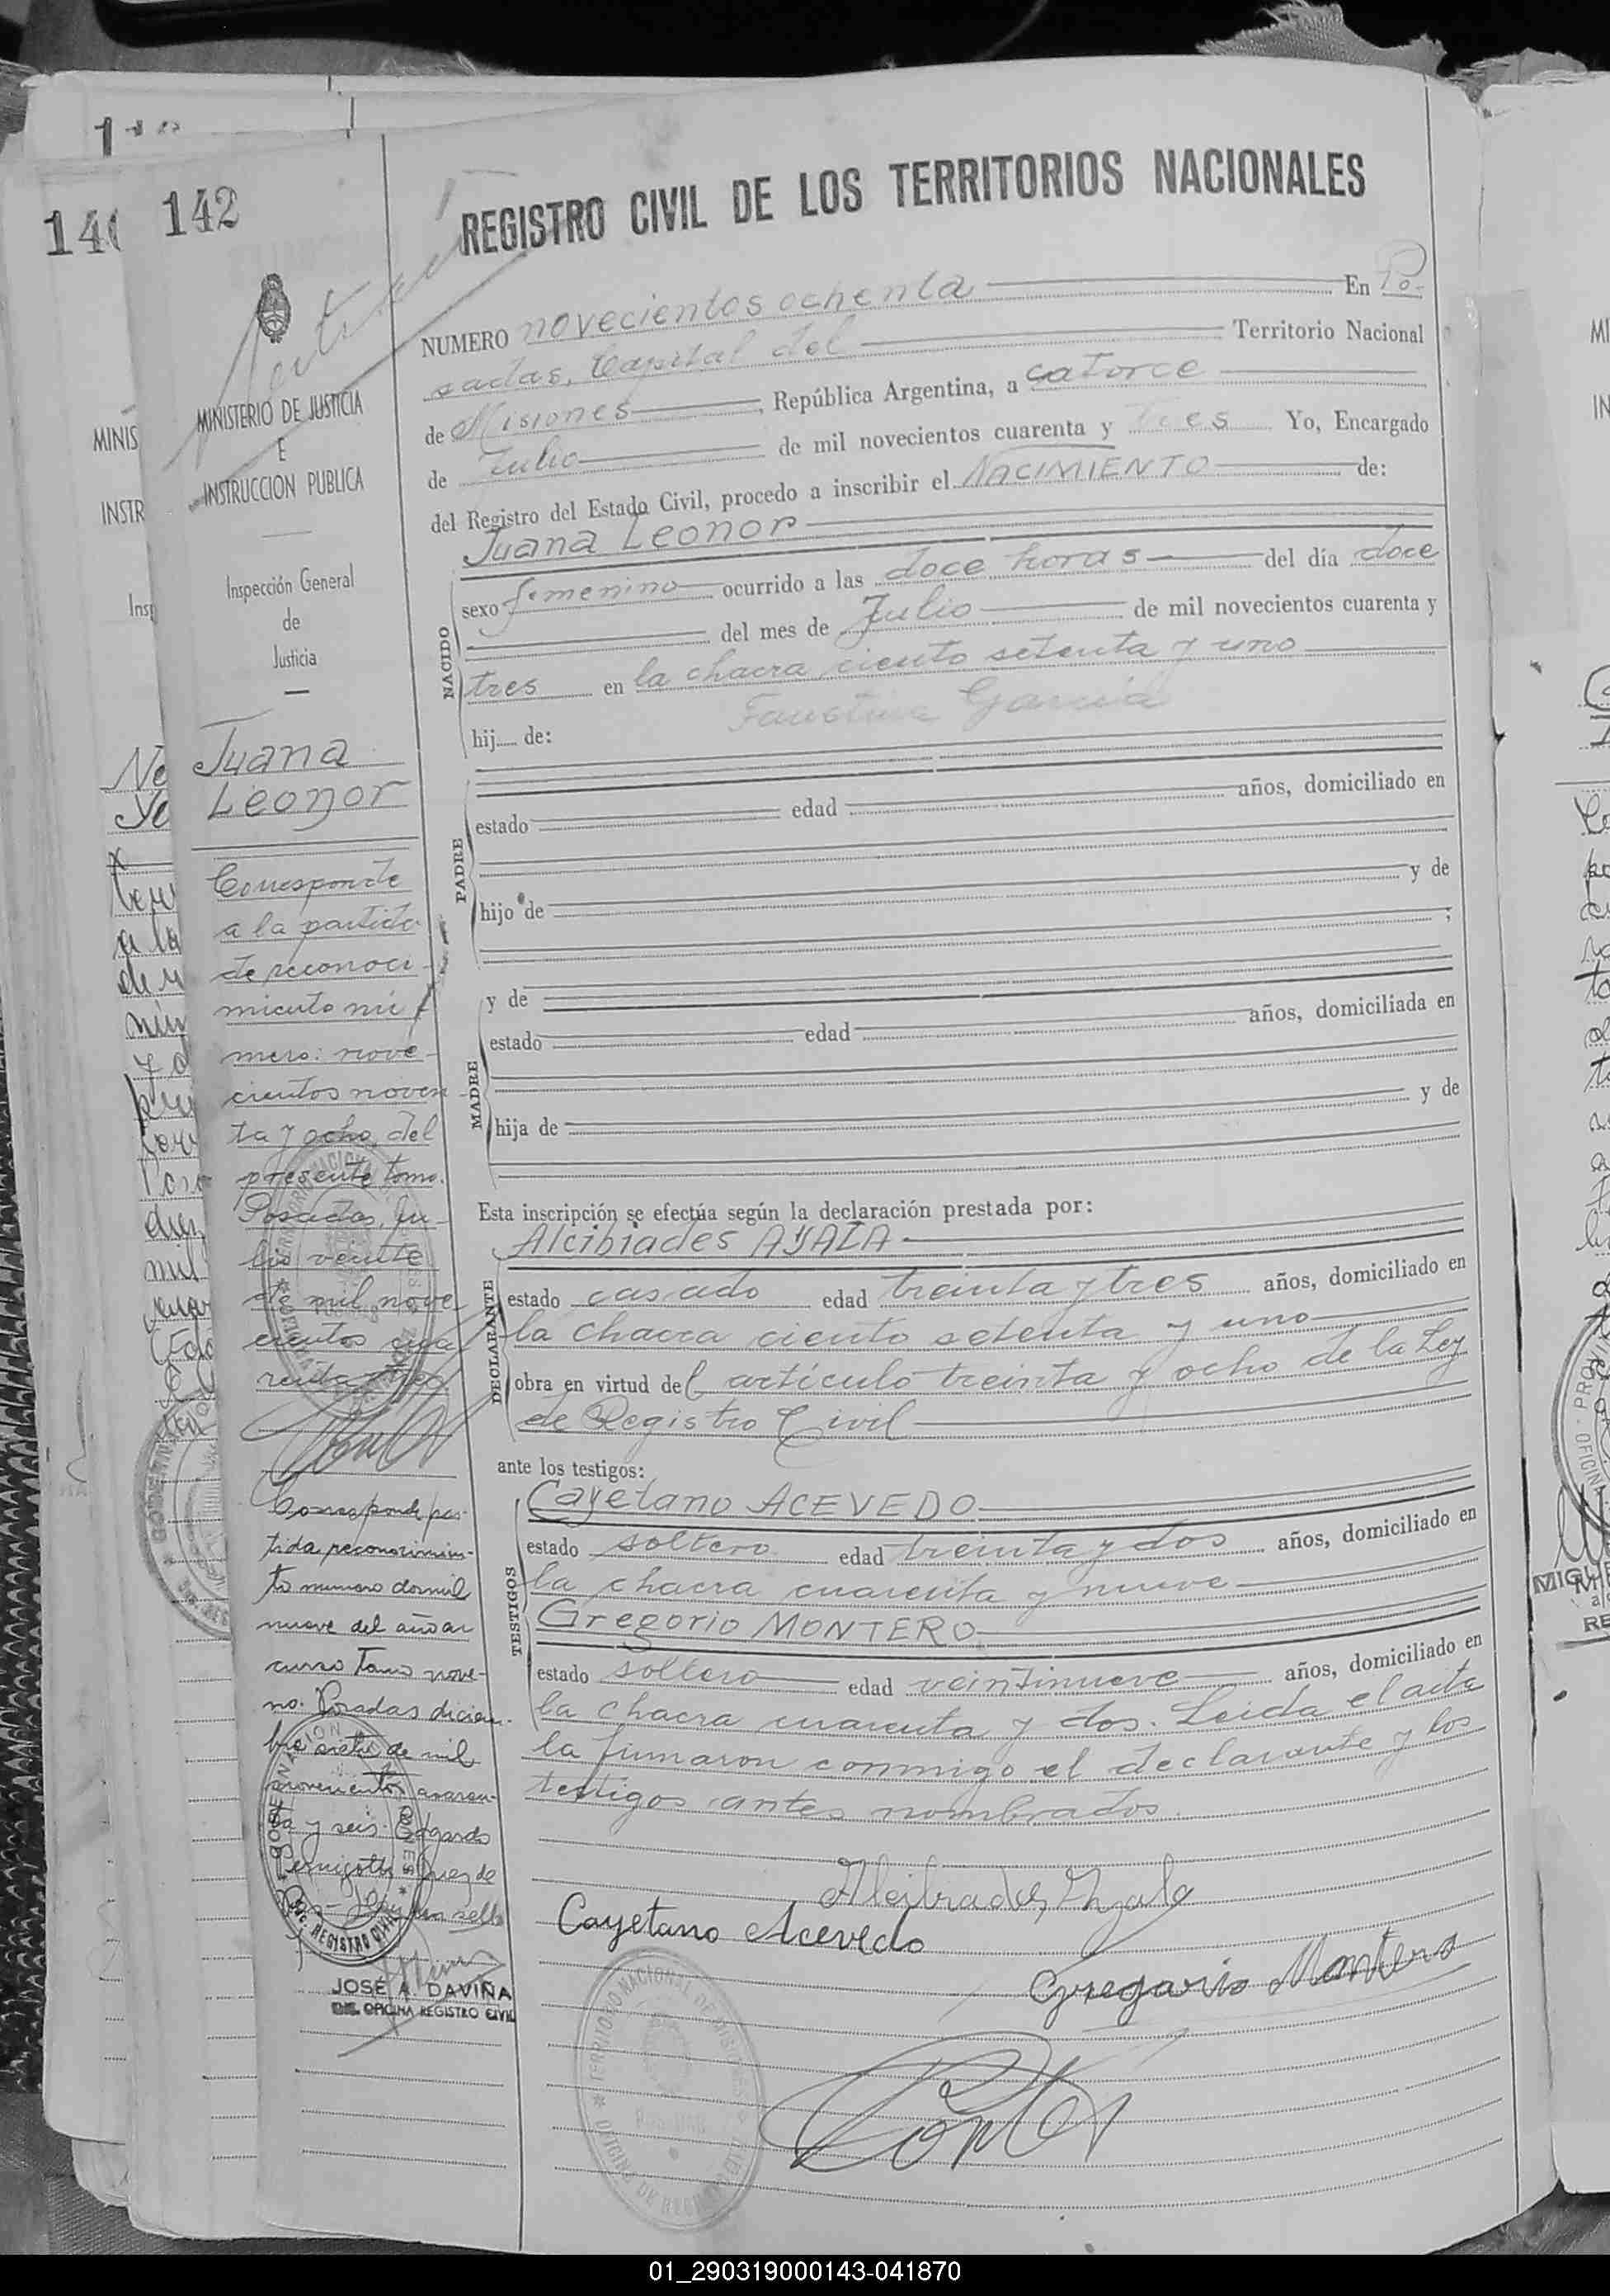 142
MINISTERIO DE JUSTICIA
E
INSTRUCCION PUBLICA
Inspección General
de
Justicia
Juana
Leonor
Corresponde
a la partida
de reconoci-
miento nú-
mero: nove-
cientos noven
ta y ocho, del
presente tomo.
Posadas, Ju-
lio veinte
de mil nove-
cientos cua
renta tres
Corresponde par-
tida reconocimien-
to numero dosmil
nueve del año en
curso Tomo nove-
no. Posadas diciem-
bre siete de mil
novecientos cuaren-
ta y seis. Edgardo
JOSÉ A. DAVIÑA
OFICINA REGISTRO CIVIL
REGISTRO CIVIL DE LOS TERRITORIOS NACIONALES
NUMERO novecientos ochenta En Po-
sadas, Capital del Territorio Nacional
de Misiones, República Argentina, a catorce
de Julio de mil novecientos cuarenta y tres Yo, Encargado
del Registro del Estado Civil, procedo a inscribir el NACIMIENTO de:
NACIDO
Juana Leonor
sexo femenino ocurrido a las doce horas del día doce
del mes de Julio de mil novecientos cuarenta y
tres en la chacra ciento setenta y uno
Faustina Garcia
hij de:
PADRE
estado edad años, domiciliado en
hijo de y de
;
MADRE
y de
estado edad años, domiciliada en
hija de y de
Esta inscripción se efectúa según la declaración prestada por:
DECLARANTE
Alcibiades AYALA
estado casado edad treinta y tres años, domiciliado en
la chacra ciento setenta y uno
obra en virtud del artículo treinta y ocho de la Ley
de Registro Civil
ante los testigos:
TESTIGOS
Cayetano ACEVEDO
estado soltero edad treinta y dos años, domiciliado en
la chacra cuarenta y nueve
Gregorio MONTERO
estado soltero edad veintinueve años, domiciliado en
la chacra cuarenta y dos. Leida el acta
la firmaron conmigo el declarante y los
testigos antes nombrados.
Alcibiades Ayala
Cayetano Acevedo
Gregorio Montero
01_290319000143-041870